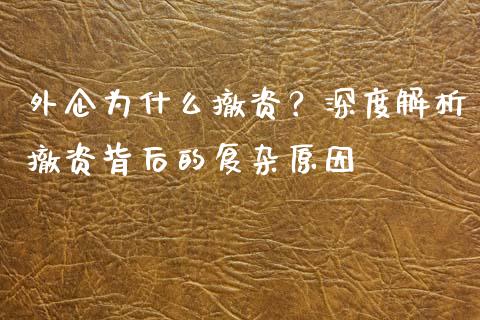 外企为什么撤资？深度解析
撤资背后的复杂原因